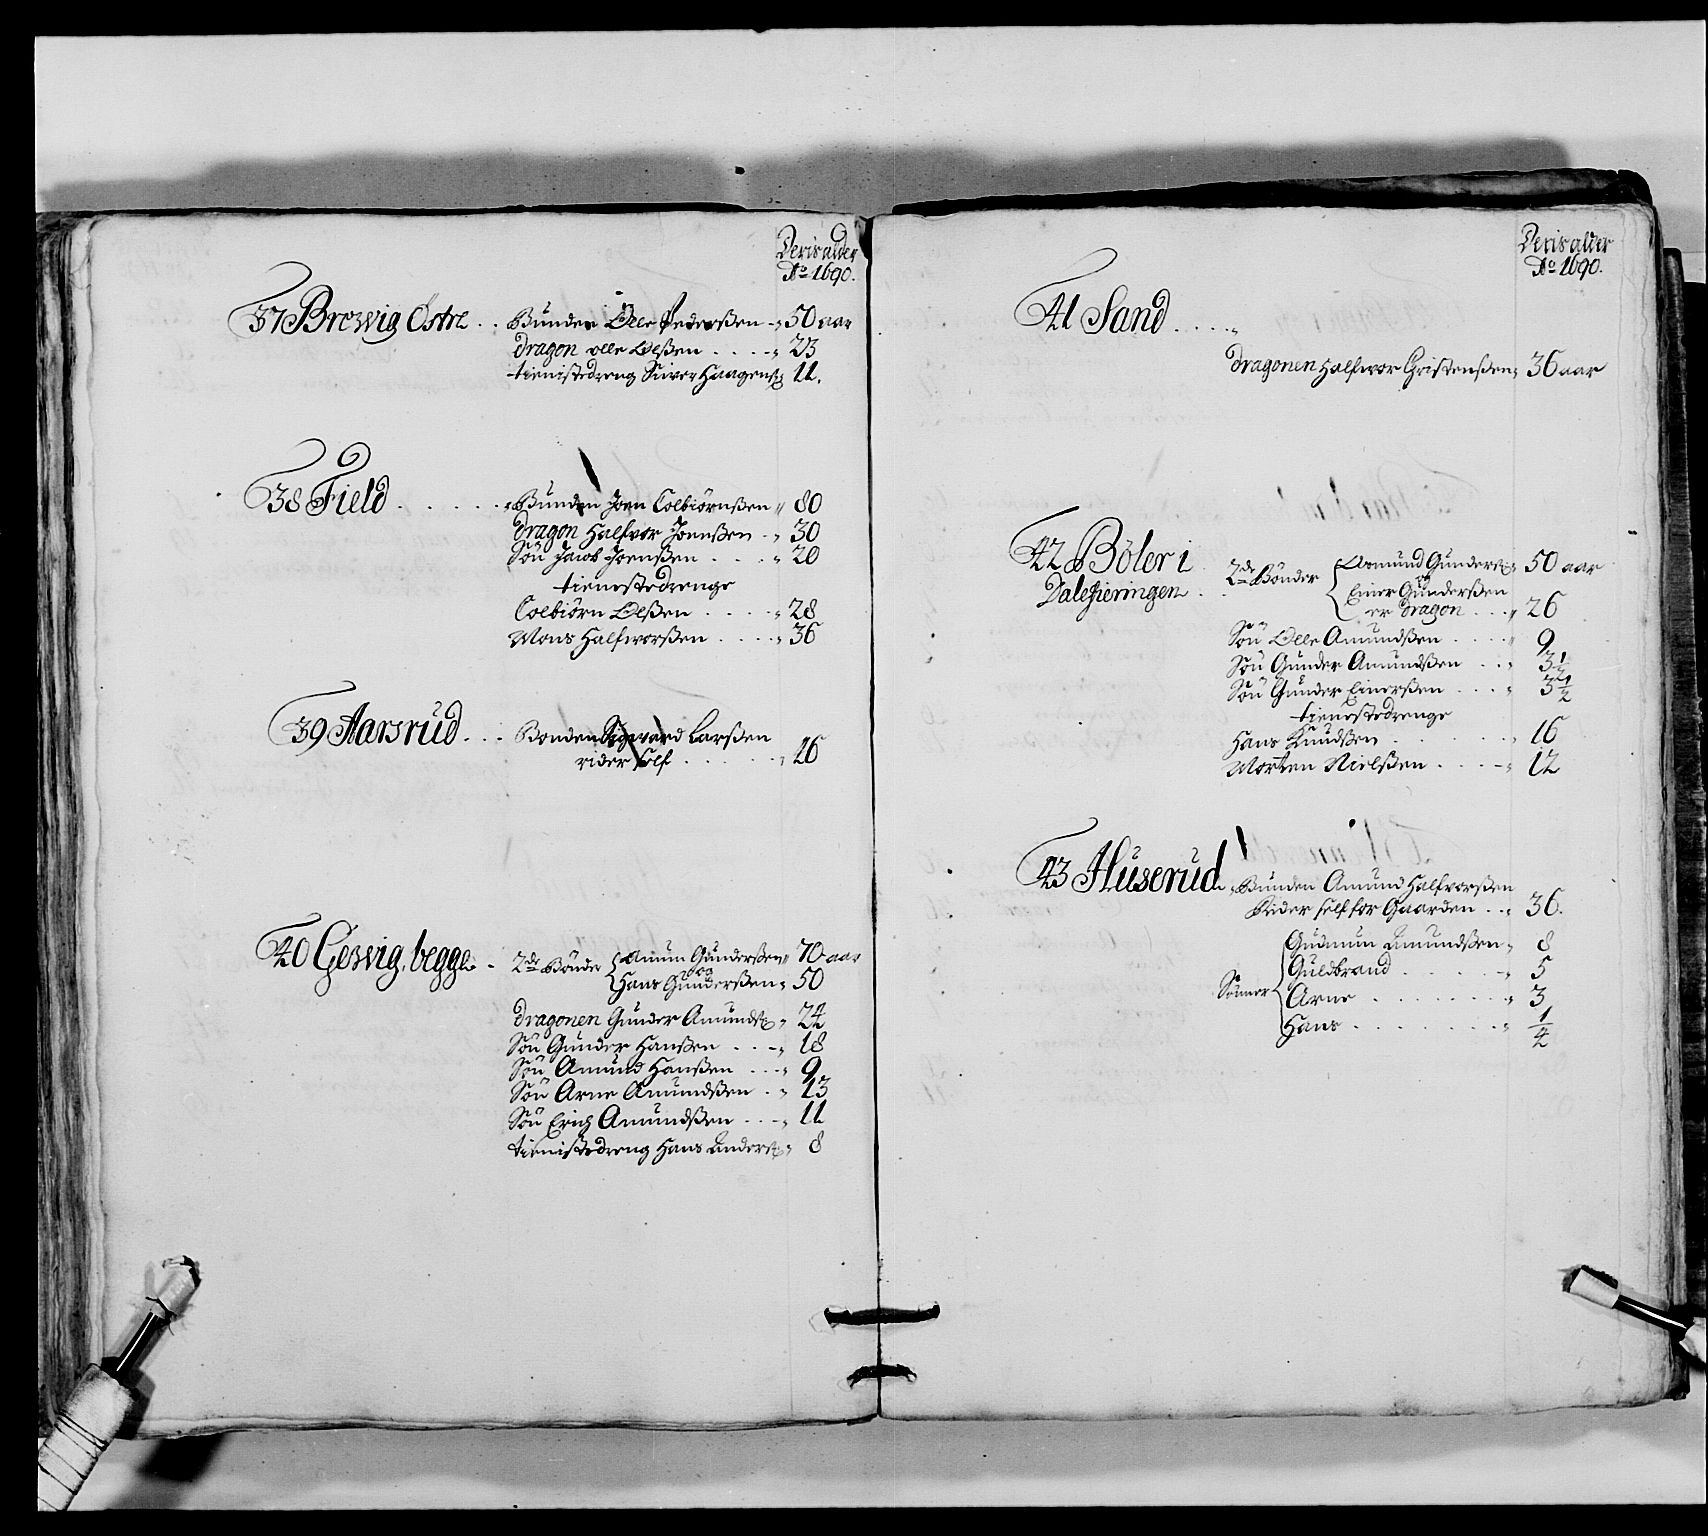 Deris alder
Ao 1690.
37 Brewig Östre . . Bunden Olle Pederßen 50 aar
dragon olle Olßen . . . . 23
tienistedreng Siwer Haagenß 11.
38 Field . . . . . . Bunden Joen Colbiörnßen 80
dragon Halfvor Joenßen . 30
Sön Jacob Joenßen . . . . 20
tienestedrenge
Colbiörn Olßen . . . . . 28
Mons Halfworßen . . . . 36
39 Aarsrud . . . Bonden Sigward Larßen
rider self . . . . . . 26
40 Geswig, begge . 2de Bönder Amun Gunderßen 70 aar
og
Hans Gunderßen 50
dragonen Gunder Amundß 24
Sön Gunder Hanßen . . . 18
Sön Amund Hanßen . . . 9
Sön Arne Amundßen . . 13
Sön Erich Amundßen . . . 11
tienistedreng Hans Anderß 8
Deris alder
Ao 1690.
41 Sand . . . . .
dragonen Halfwor Christenßen 36 aar
42 Böler i
Dalefieringen . . 2de Bönder Asmund Gunderß 50 aar
og
Einer Gunderßen
er dragon . . . 26
Sön Olle Amundßen . . . . 9
Sön Gunder Amundßen . . . 3 1/2
Sön Gunder Einerßen . . . . 3 1/2
tienestedrenge
Hans Knudßen . . . . . . 16
Morten Nielßen . . . . . 12
43 Huserud . Bunden Amund Halfvorßen
Rider self for Gaarden . . 36.
Sönner Gudmun Amundßen 8
Guldbrand . . . . . 5
Arne . . . . . . . 3
Hans . . . . . . . 1/2